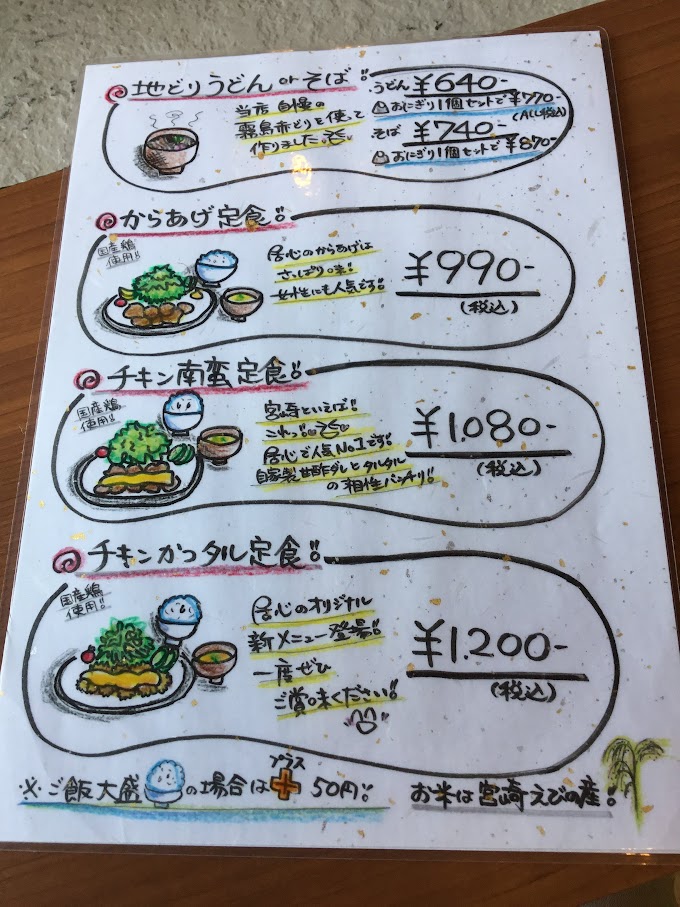 地どりうどん or そば!!
当店自慢の
霧島赤どりを使って
作りました
うどん ¥640-
おにぎり1個セットで ¥770-
(ALL税込)
そば ¥740-
おにぎり1個セットで ¥870-
からあげ定食!!
国産鶏
使用!!
居心のからあげは
さっぱり味!
女性にも人気です!!
¥990-
(税込)
チキン南蛮定食!!
国産鶏
使用!!
宮崎といえば!!
これっ!!
居心で人気No.1です!
自家製甘酢ダレとタルタル
の相性バッチリ!!
¥1.080-
(税込)
チキンかつタル定食!!
国産鶏
使用!!
居心のオリジナル
新メニュー登場!!
一度ぜひ
ご賞味ください!!
¥1.200-
(税込)
※.ご飯大盛の場合はプラス+50円!!
お米は宮崎えびの産!